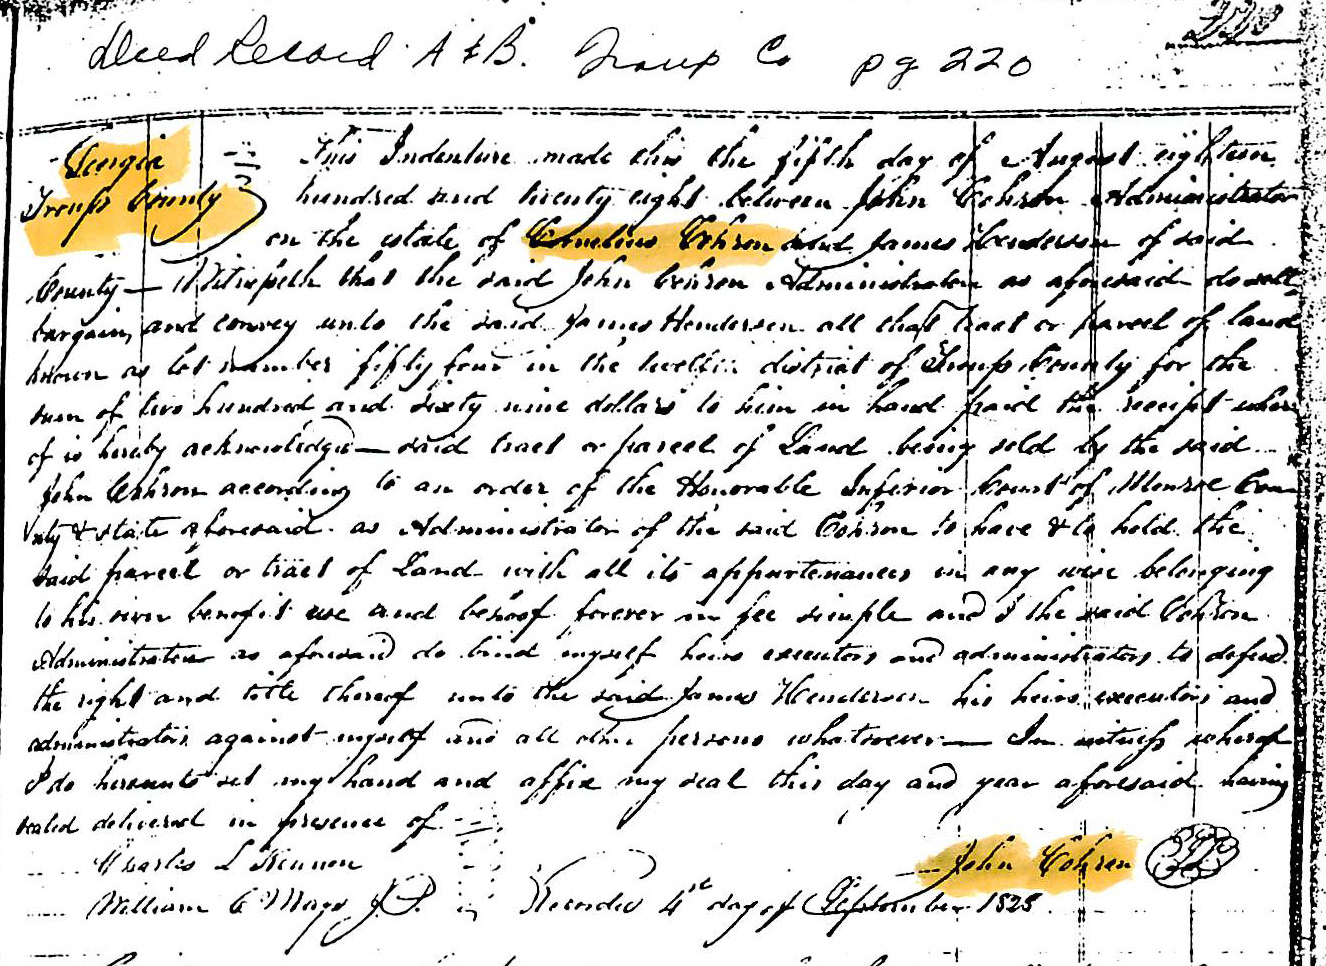 Deed Record A & B. Troup Co pg 220
Georgia This Indenture made this the fifth day of August eighteen
Troup County hundred and twenty eight between John Cohron Administrator
on the estate of Cornelius Cohron and James Henderson of said
County — Witnesseth that the said John Cohron Administrator as aforesaid do sell
bargain, and convey unto the said James Henderson all that tract or parcel of land
known as lot number fifty four in the district of Troup County for the
sum of two hundred and sixty nine dollars to him in hand paid the receipt where
of is hereby acknowledged — said tract or parcel of Land being sold by the said
John Cohron according to an order of the Honorable Inferior Court of Monroe Cou
nty & state aforesaid as Administrator of the said Cohron to have & to hold the
said parcel or tract of Land with all its appurtenances in any wise belonging
to his own benefit use and behoof forever in fee simple and I the said Cohron
Administrator as aforesaid do bind myself heirs executors and administrators to defend
the right and title thereof unto the said James Henderson his heirs executors and
administrators against myself and all other persons whatsoever — In witness whereof
I do hereunto set my hand and affix my seal this day and year aforesaid having
sealed delivered in presence of
Charles L Kennon John Cohron
William C Mays J.P. Recorded 4th day of September 1828